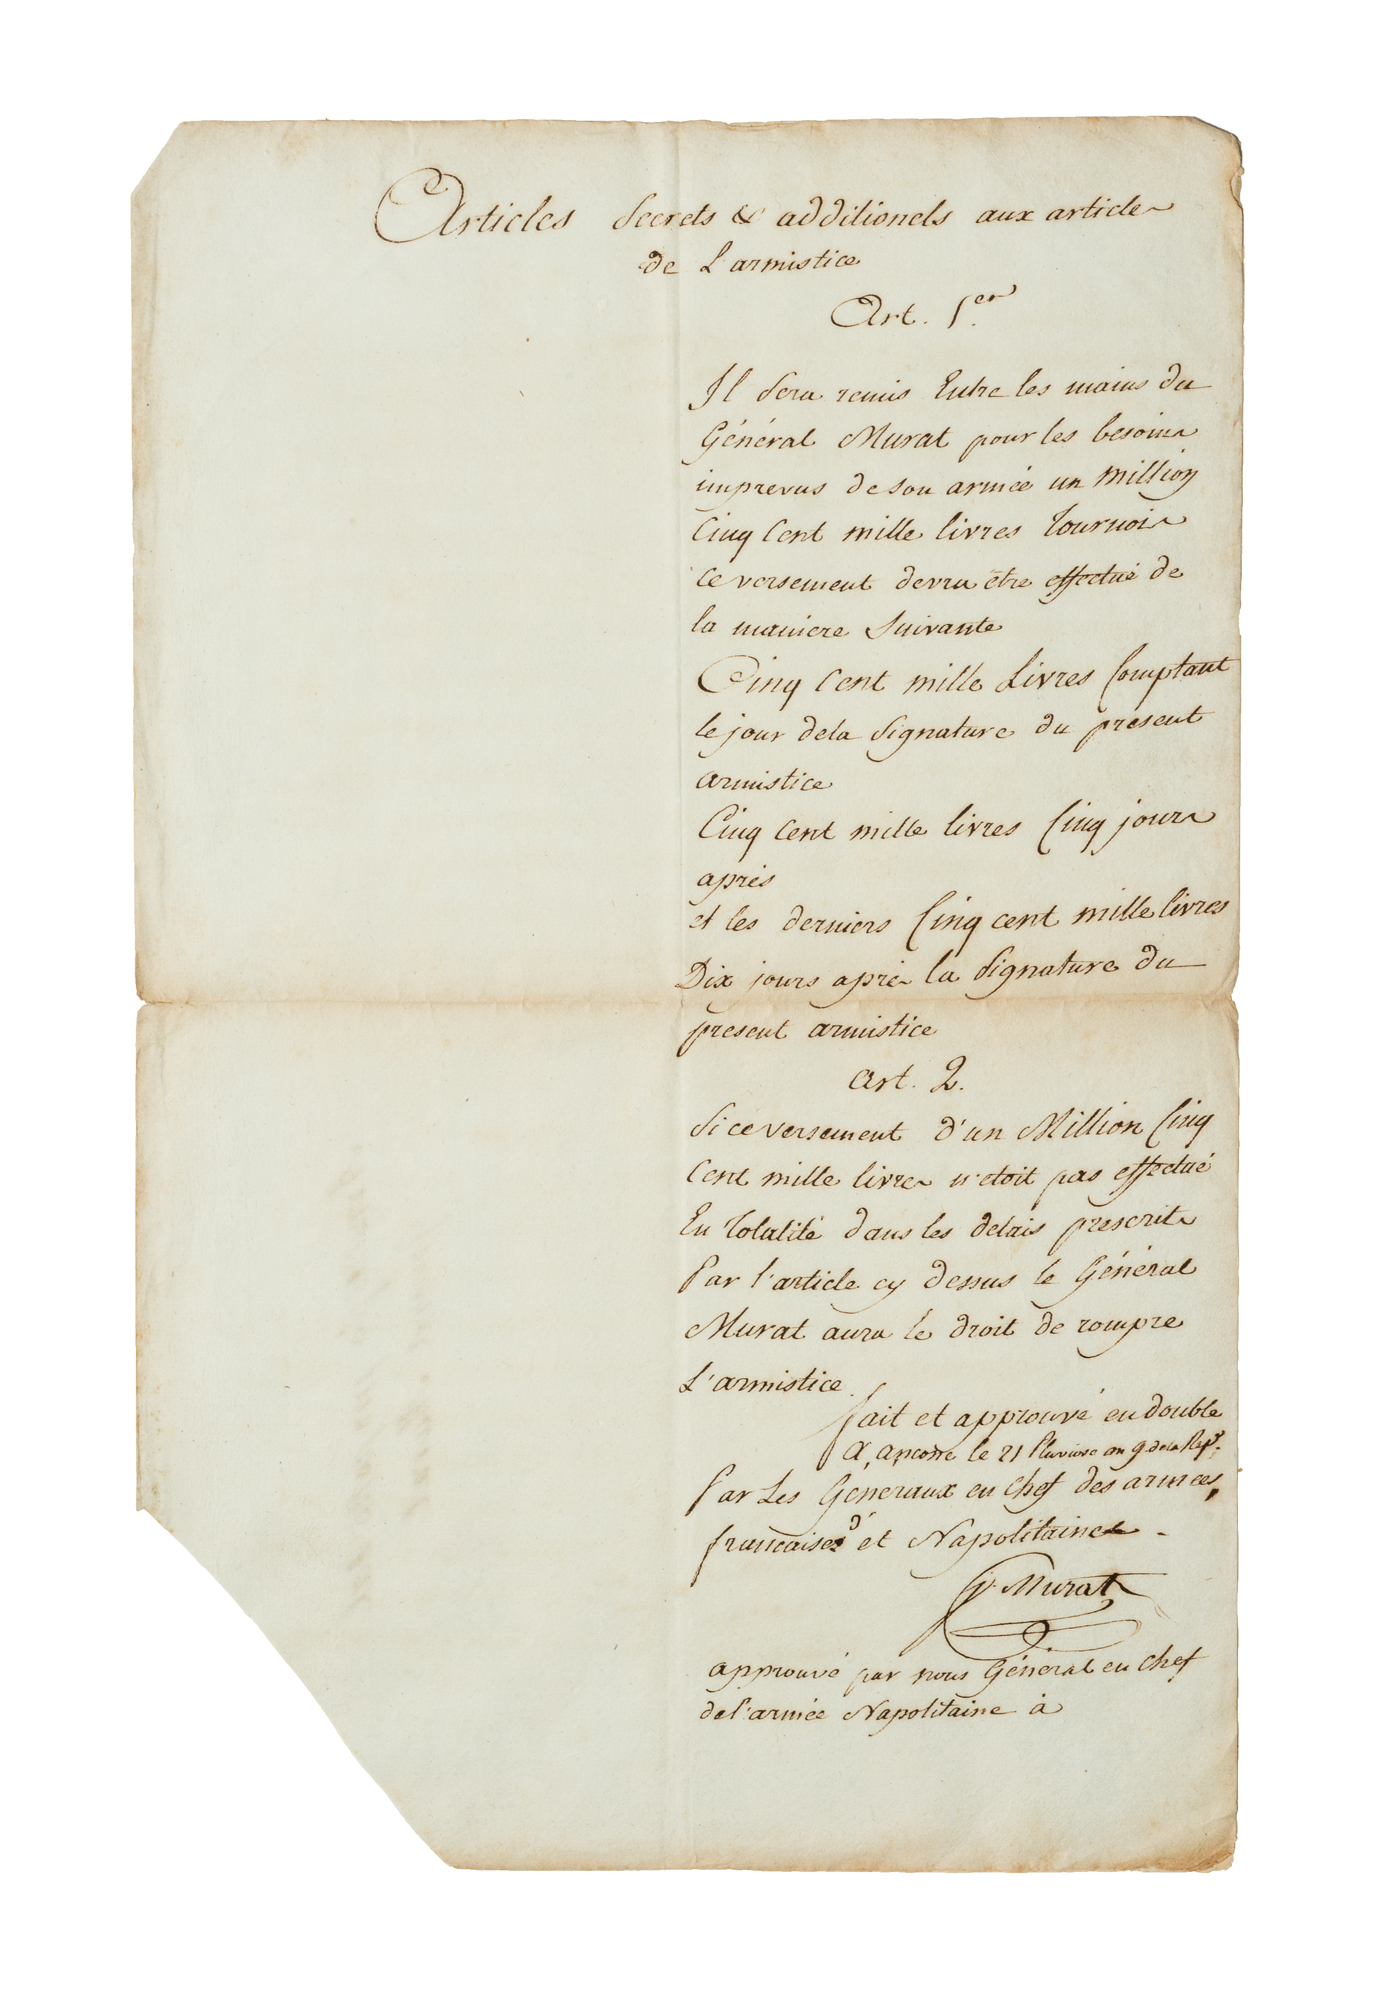 Articles Secrets & additionels aux articles
de L'armistice
Art. 1.er
Il Sera remis Entre les mains du
Général Murat pour les besoins
imprevus de son armée un Million
Cinq Cent mille livres Tournois
Ce versement devra être effectué de
la maniere Suivante
Cinq Cent mille Livres Comptant
le jour dela Signature du présent
armistice
Cinq Cent mille livres Cinq jours
après
et les derniers Cinq cent mille livres
Dix jours après la Signature du
present armistice
art. 2.
Si ce versement d'un Million Cinq
Cent mille livres n'etoit pas effectué
En Totalité dans les delais prescrits
Par l'article cy dessus le Général
Murat aura le droit de rompre
L'armistice.
fait et approuvé en double
A ancone le 21 Pluviose an 9 dela Rep.
Par Les Géneraux en Chef des armées
francaises et Napolitaines -
J. Murat
approuvé par nous Général en Chef
de l'armée Napolitaine à